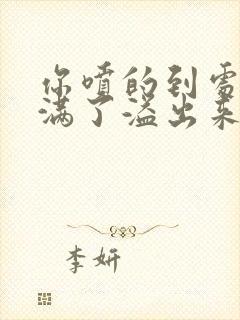 你喷的到处
满了溢出来
李妍